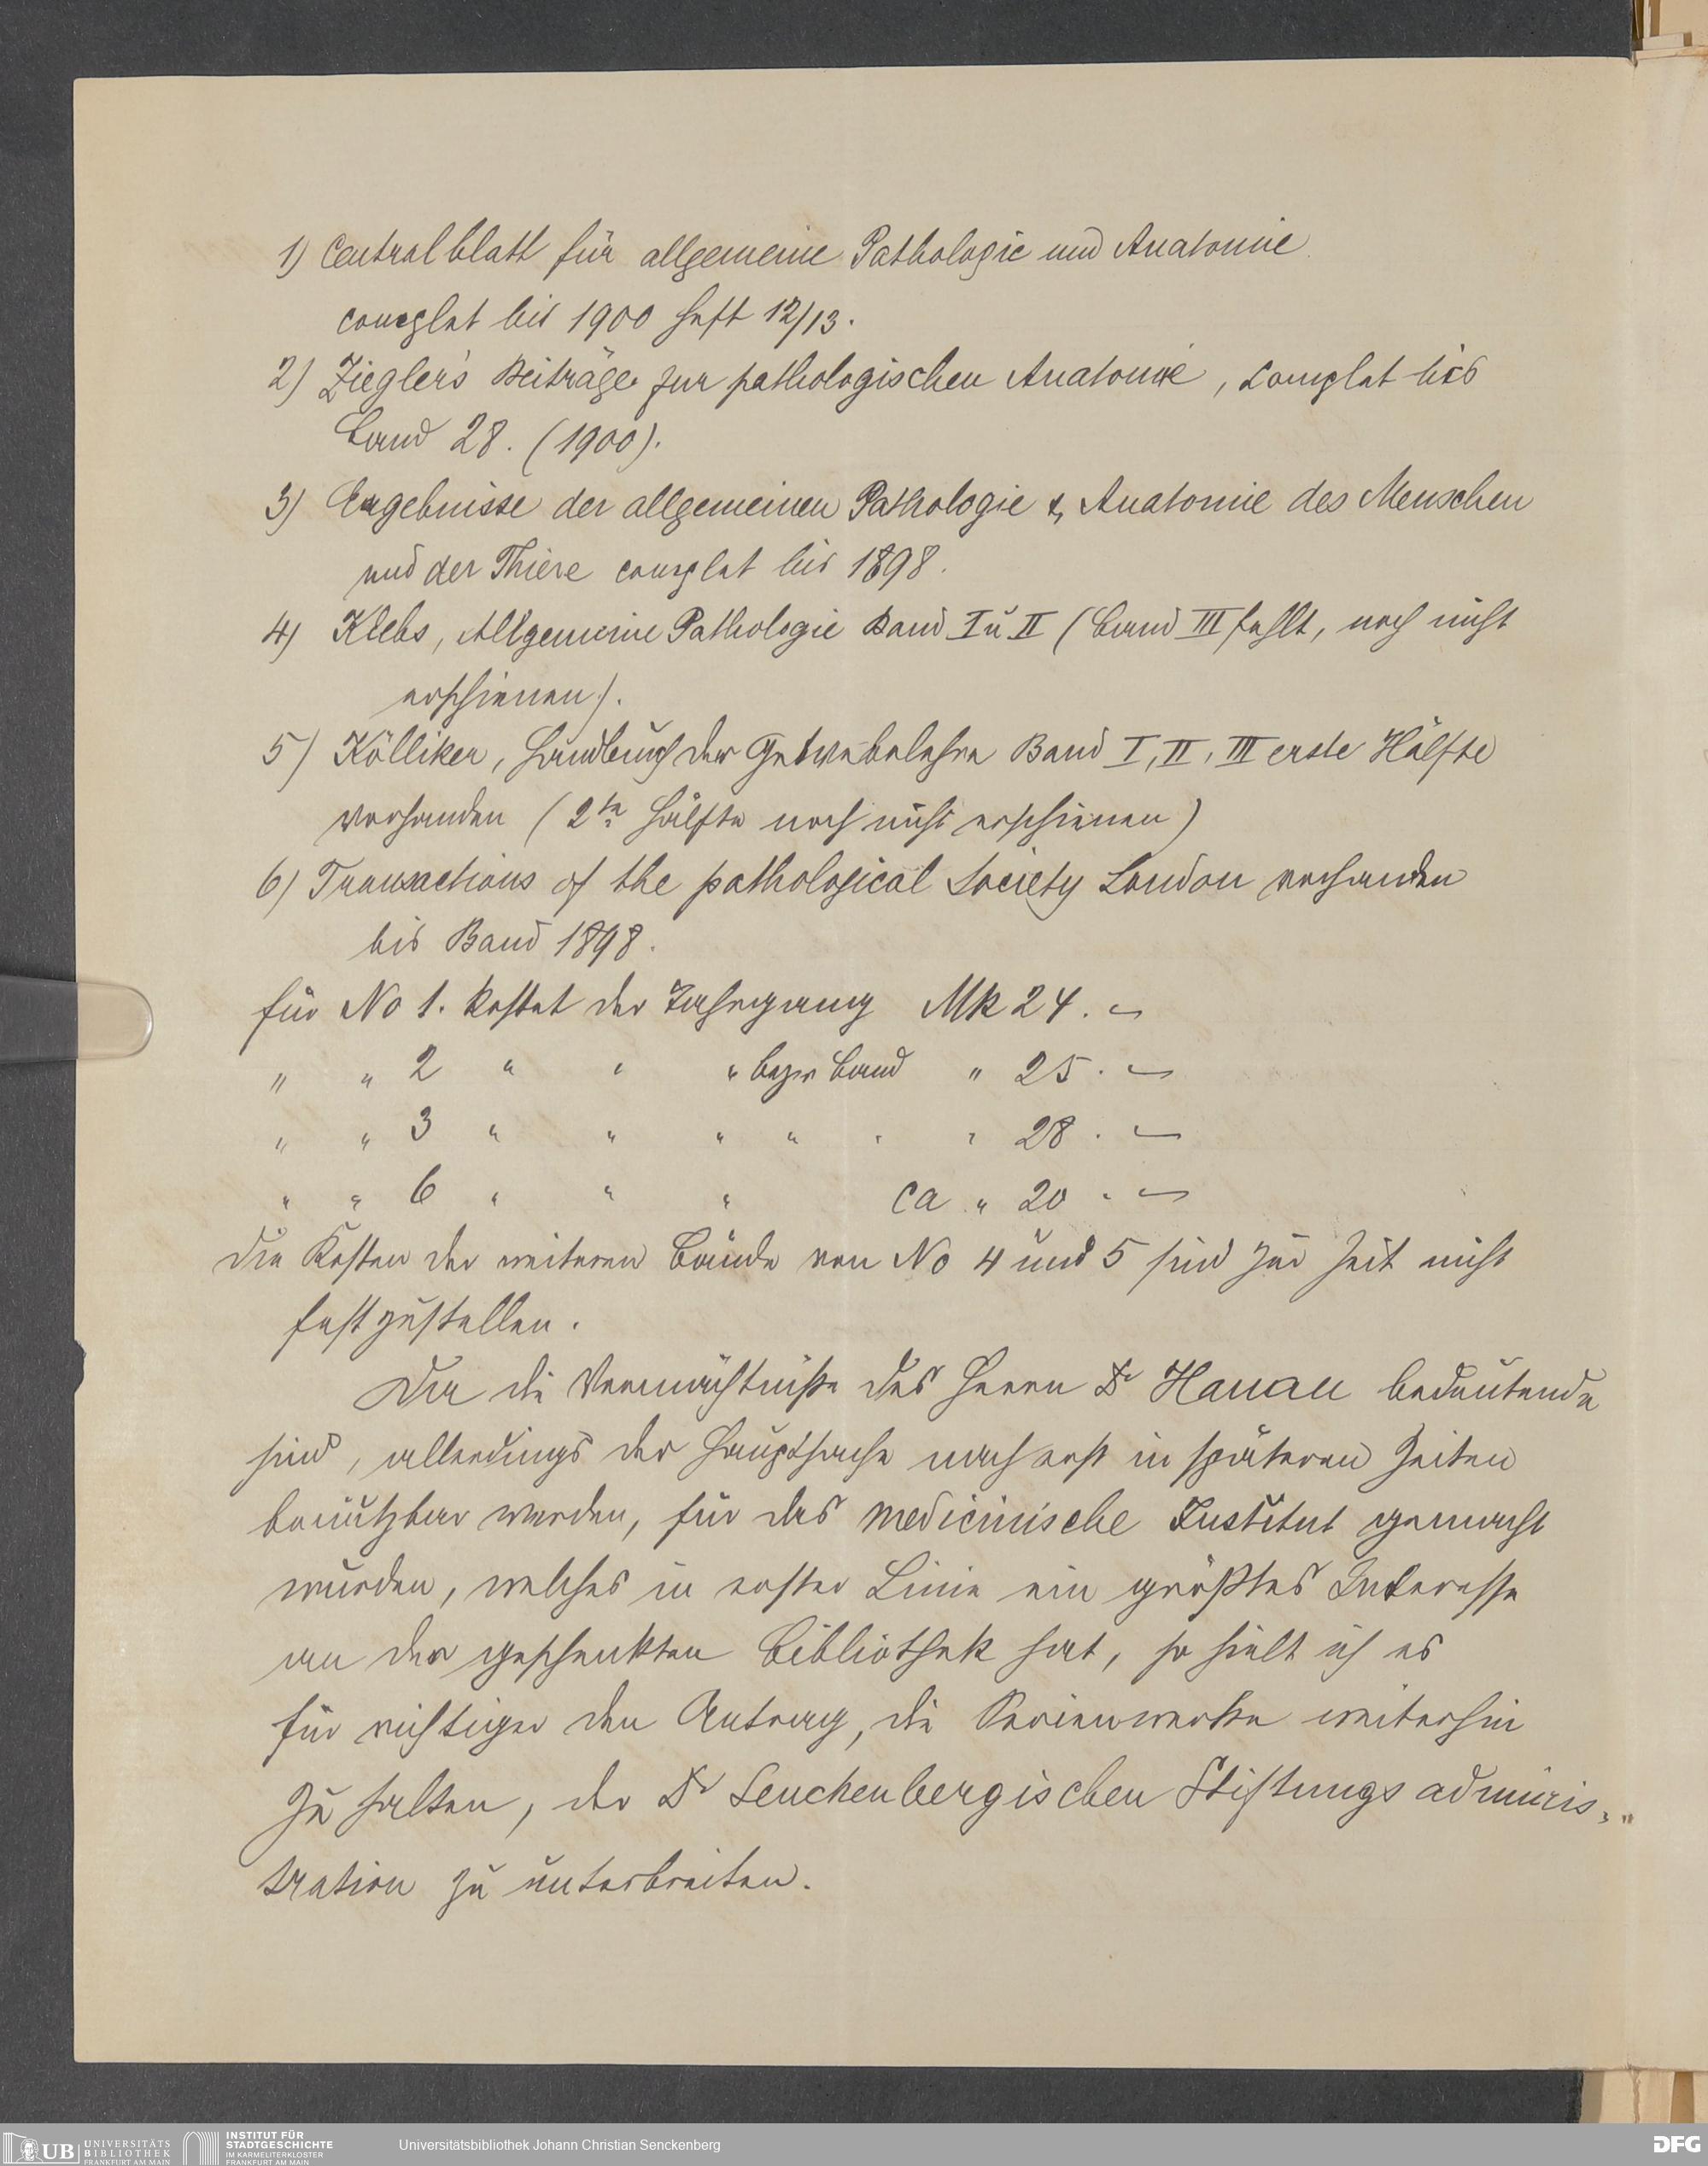 1) Centralblatt für allgemeine Pathologie und Anatomie
complet bis 1900 Heft 12/13.
2) Ziegler's Beiträge zur pathologischen Anatomie, complet bis
Band 28. (1900).
3) Ergebnisse der allgemeinen Pathologie & Anatomie des Menschen
und der Thiere complet bis 1898.
4) Klebs, Allgemeine Pathologie Band I u II (Band III fehlt, noch nicht
erschienen).
5) Kölliker, Handbuch der Gewebelehre Band I, II, III erste Hälfte
vorhanden (2te Hälfte noch nicht erschienen)
6) Transactions of the pathological Society London vorhanden
bis Band 1898.
für No 1. kostet der Jahrgang Mk 24. –
" " 2 " " " bezw Band " 25. –
" " 3 " " " " " " 28. –
" " 6 " " " ca " 20. –
Die Kosten der weiteren Bände von No 4 und 5 sind zur Zeit nicht
festzustellen.
Da die Vermächtniße des Herrn Dr Hanau bedeutende
sind, allerdings der Hauptsache nach erst in späteren Zeiten
benützbar werden, für das medicinische Institut gemacht
wurden, welches in erster Linie ein größtes Interesse
an der geschenkten Bibliothek hat, so hielt ich es
für richtiger den Antrag, die Serienwerke weiterhin
zu halten, der Dr Senckenbergischen Stiftungsadminis-
tration zu unterbreiten.
UB UNIVERSITÄTS
BIBLIOTHEK
FRANKFURT AM MAIN
INSTITUT FÜR
STADTGESCHICHTE
IM KARMELITERKLOSTER
FRANKFURT AM MAIN
Universitätsbibliothek Johann Christian Senckenberg
DFG